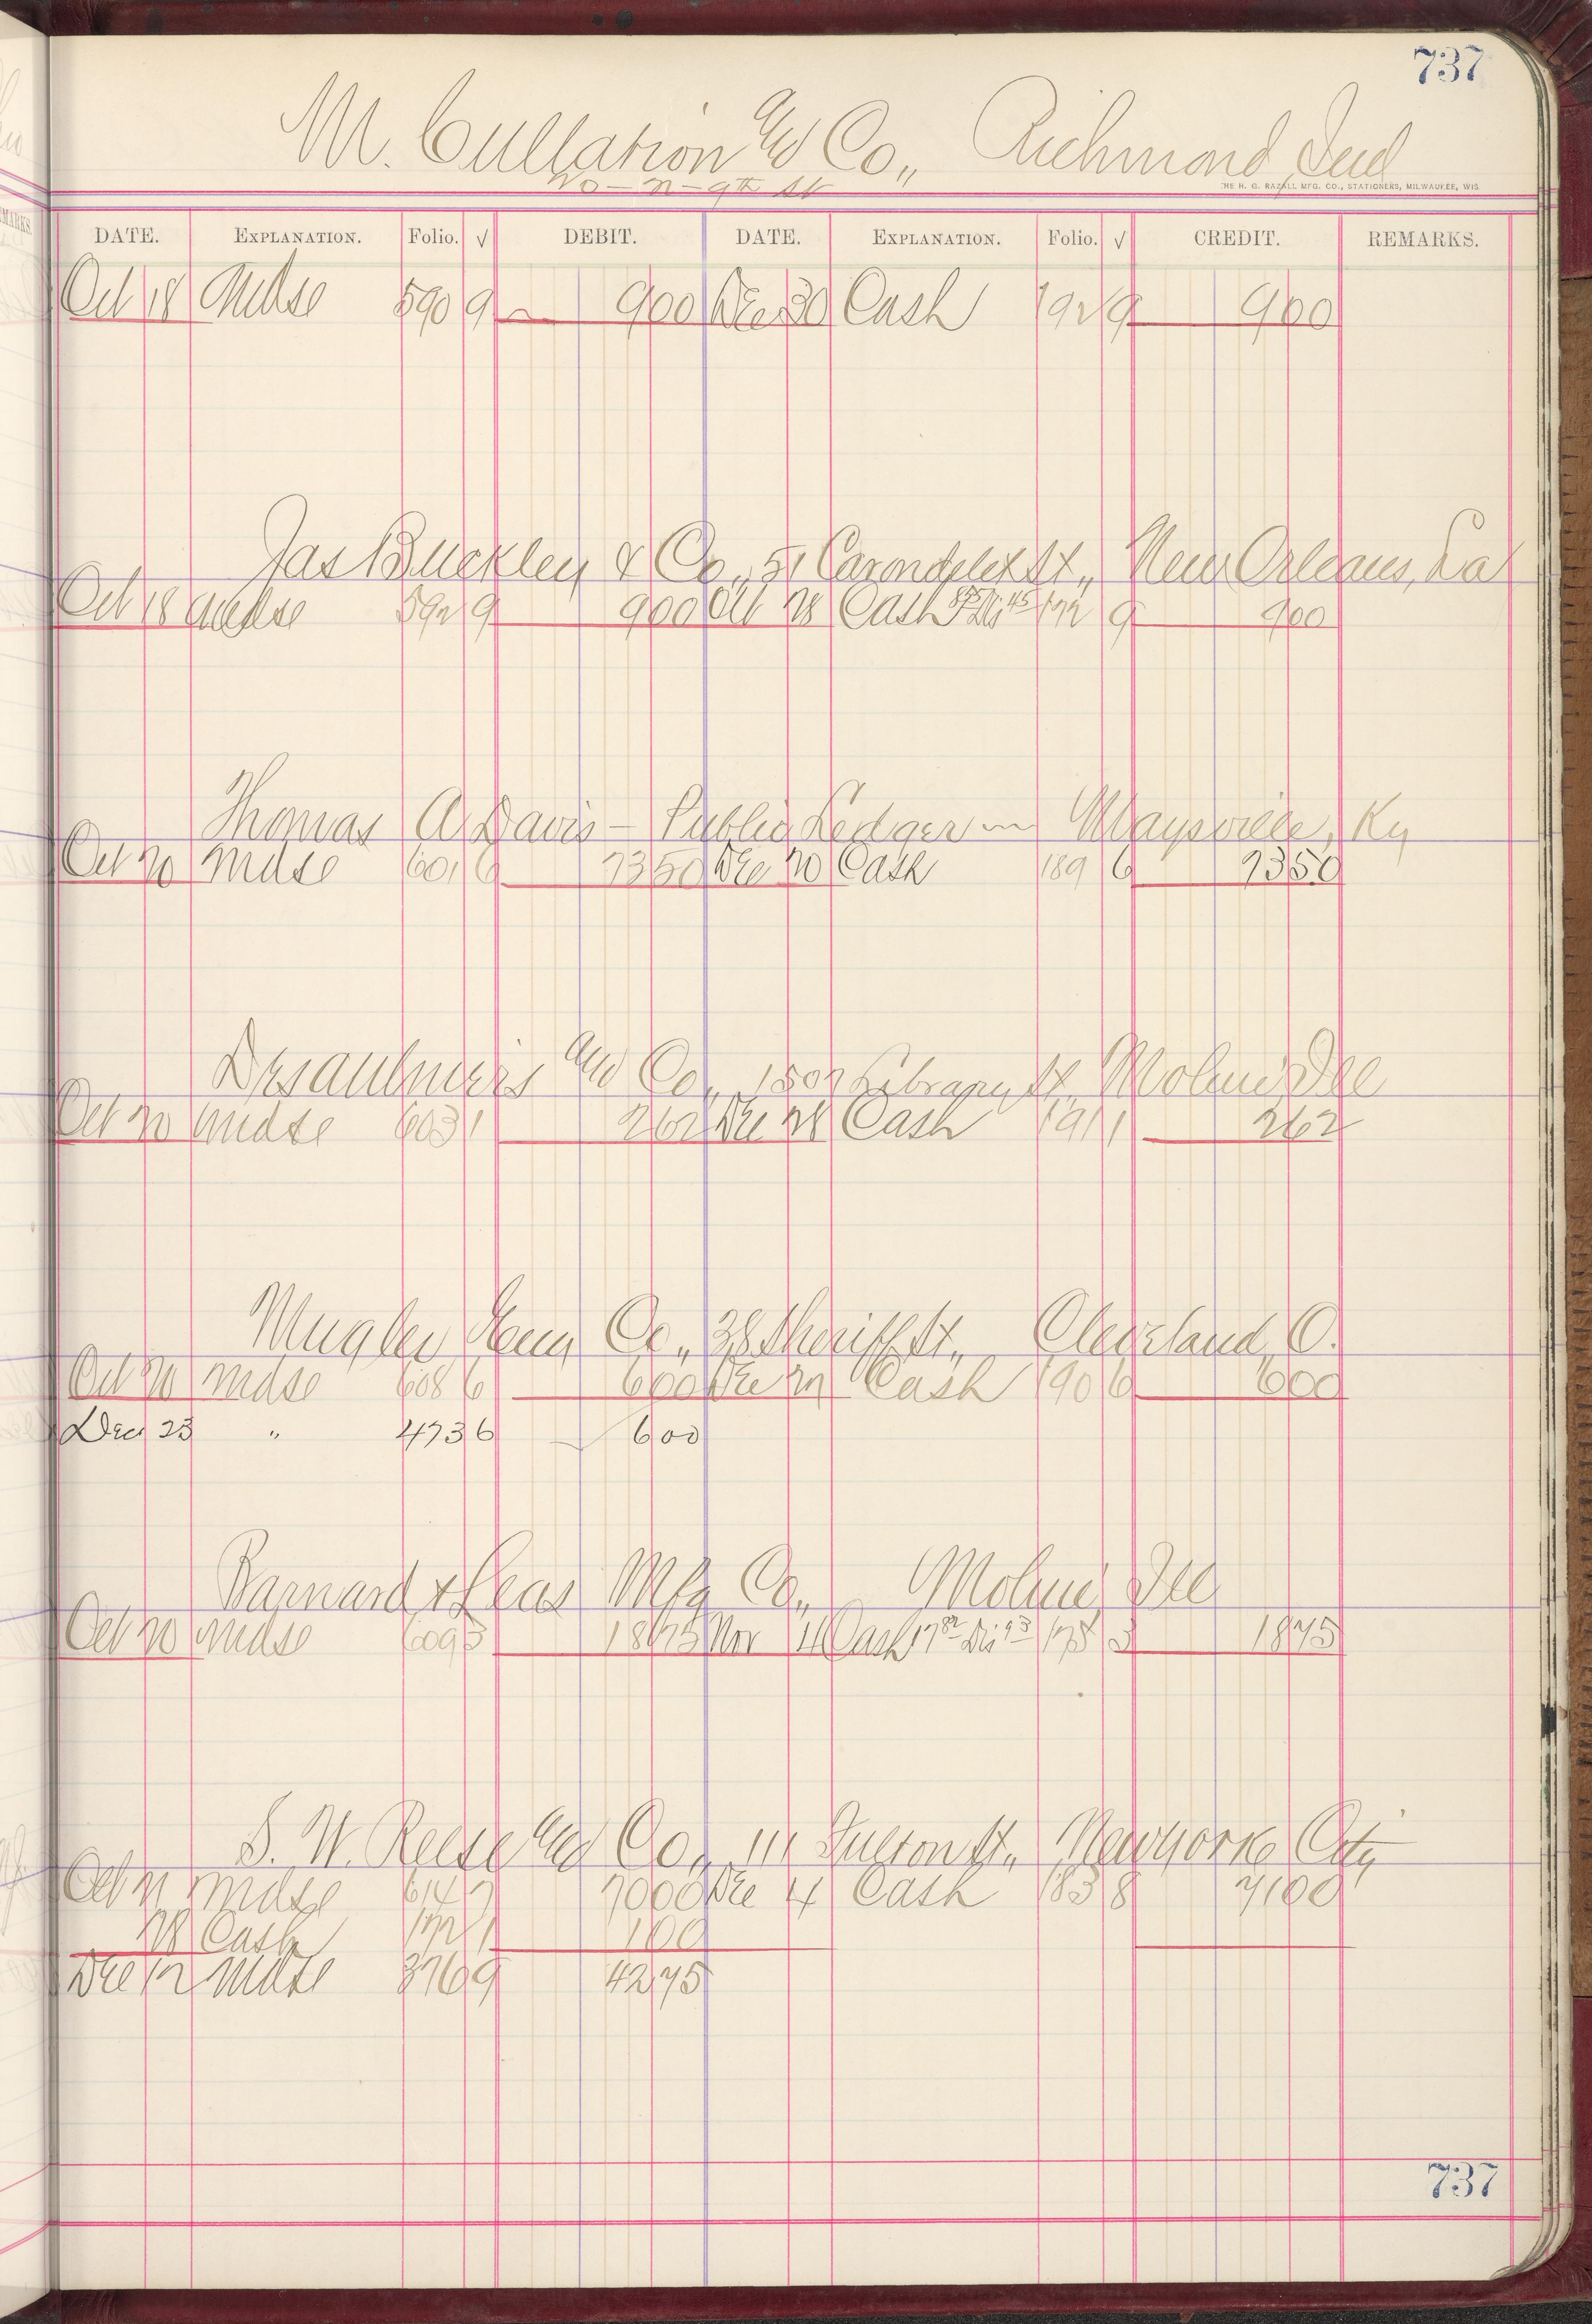 737
M. Cullation and Co., Richmond, Ind
20 - N - 9th St
THE H. G. RAZALL MFG. CO., STATIONERS, MILWAUKEE, WIS.
DATE. EXPLANATION. Folio. √ DEBIT. DATE. EXPLANATION. Folio. √ CREDIT. REMARKS.
Oct 18 Mdse 590 9 900 Dec 30 Cash 192 9 900
Jas Buckley & Co., 51 Carondelet St., New Orleans, La
Oct 18 Mdse 592 9 900 Oct 28 Cash Dis 45 172 9 900
Thomas A Davis - Public Ledger - Maysville, Ky
Oct 20 Mdse 601 6 7350 Dec 20 Cash 189 6 7350
Desaulniers and Co., 1502 Library St, Moline Ill
Oct 20 Mdse 603 1 262 Dec 28 Cash 191 1 262
Mugler Eng Co., 38 Sheriff St., Cleveland, O.
Oct 20 Mdse 608 6 600 Dec 22 Cash 190 6 600
Dec 23 " 473 6 600
Barnard & Leas Mfg Co., Moline Ill
Oct 20 Mdse 609 3 1875 Nov 11 Cash 17 82 Dis 93 175 3 1875
S. W. Reese and Co., 111 Fulton St., New York City
Oct 21 Mdse 614 7 7000 Dec 4 Cash 183 8 7100
28 Cash 172 1 100
Dec 12 Mdse 376 9 4275
737